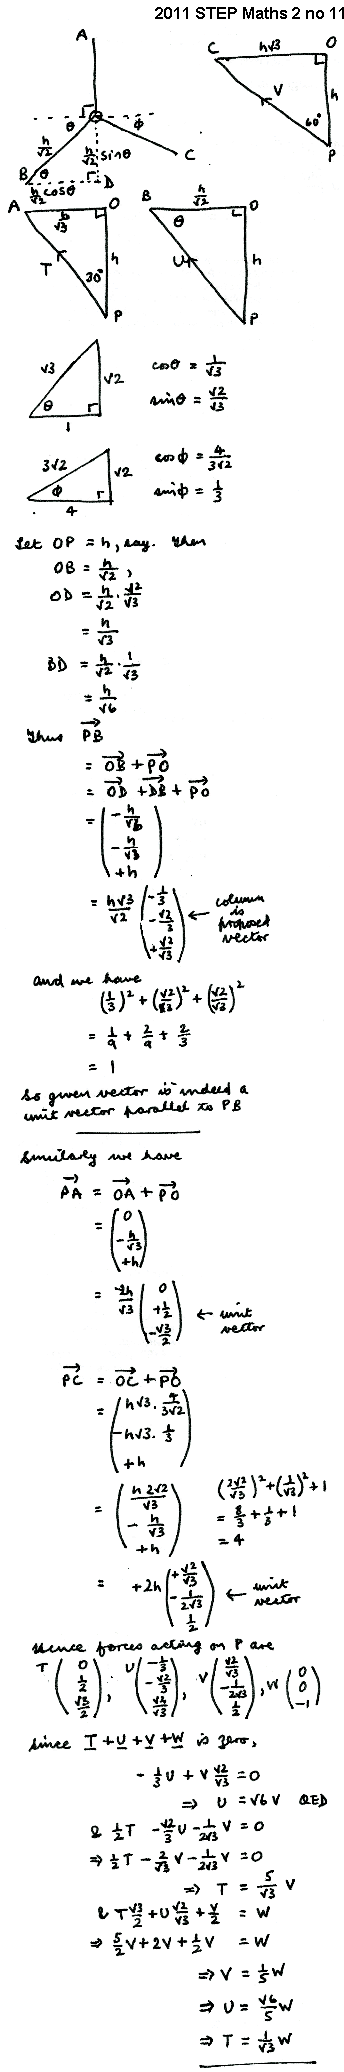 2011 STEP Maths 2 no 11
A
θ φ
h/√2 h/√2 sinθ
B θ C
h/√2 cosθ D
C h√3 O
V h
60°
P
A h/√3 O
T 30° h
P
B h/√2 O
θ
U h
P
√3 √2
θ
1
cosθ = 1/√3
sinθ = √2/√3
3√2 √2
φ
4
cosφ = 4/3√2
sinφ = 1/3
Let OP = h, say. Then
OB = h/√2,
OD = h/√2 . √2/√3
= h/√3
BD = h/√2 . 1/√3
= h/√6
Thus PB→
= OB→ + PO→
= OD→ + DB→ + PO→
= (-h/√6, -h/√3, +h)
= h√3/√2 (-1/3, -√2/3, +√2/√3) ← column is proposed vector
and we have
(1/3)² + (√2/3)² + (√2/√3)²
= 1/9 + 2/9 + 2/3
= 1
So given vector is indeed a
unit vector parallel to PB
Similarly we have
PA→ = OA→ + PO→
= (0, -h/√3, +h)
= -2h/√3 (0, +1/2, -√3/2) ← unit vector
PC→ = OC→ + PO→
= (h√3 . 4/3√2, -h√3 . 1/3, +h)
= (h 2√2/√3, -h/√3, +h)
(2√2/√3)² + (1/√3)² + 1
= 8/3 + 1/3 + 1
= 4
= +2h (+√2/√3, -1/2√3, 1/2) ← unit vector
Hence forces acting on P are
T (0, 1/2, √3/2), U (-1/3, -√2/3, √2/√3), V (√2/√3, -1/2√3, 1/2), W (0, 0, -1)
since T + U + V + W is zero,
- 1/3 U + V √2/√3 = 0
⇒ U = √6 V QED
& 1/2 T - √2/3 U - 1/2√3 V = 0
⇒ 1/2 T - 2/√3 V - 1/2√3 V = 0
⇒ T = 5/√3 V
& T √3/2 + U √2/√3 + V/2 = W
⇒ 5/2 V + 2V + 1/2 V = W
⇒ V = 1/5 W
⇒ U = √6/5 W
⇒ T = 1/√3 W